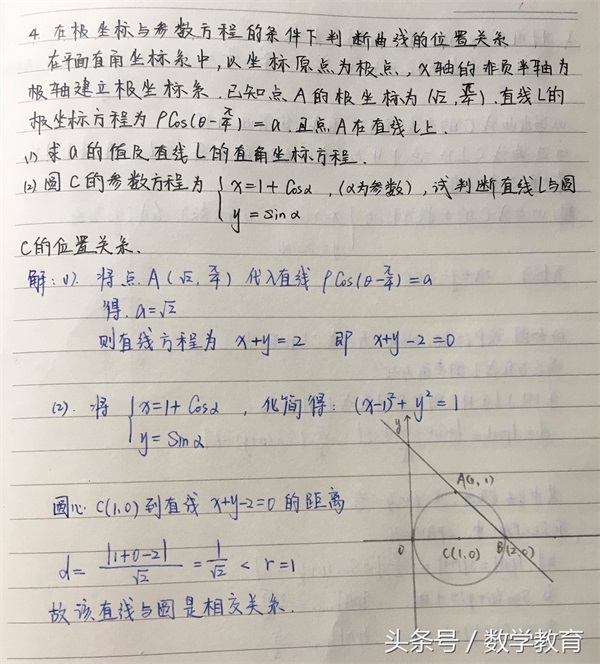 4. 在极坐标与参数方程的条件下判断曲线的位置关系
在平面直角坐标系中,以坐标原点为极点,x轴的非负半轴为
极轴建立极坐标系.已知点A的极坐标为(√2, π/4).直线L的
极坐标方程为ρCos(θ-π/4)=a.且点A在直线L上.
(1) 求a的值及直线L的直角坐标方程.
(2) 圆C的参数方程为{x=1+Cosα ,(α为参数),试判断直线L与圆
y=Sinα
C的位置关系.
解:(1). 将点A(√2, π/4)代入直线ρCos(θ-π/4)=a
得.a=√2
则直线方程为 x+y=2 即 x+y-2=0
(2). 将{x=1+Cosα ,化简得:(x-1)²+y²=1
y=Sinα
y
A(1,1)
圆心C(1,0)到直线x+y-2=0的距离
0 C(1,0) B(2,0)
d=|1+0-2|/√2=1/√2<r=1
故该直线与圆是相交关系.
头条号/数学教育